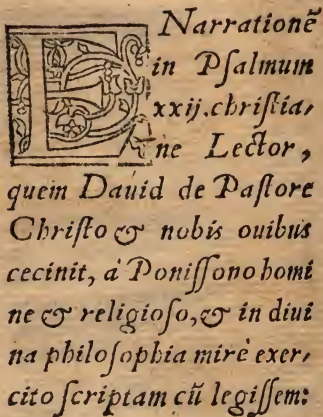 ENarrationē
in Pſalmum
xxij.chriſtia,
ne Lector,
quem Dauid de Paſtore
Chriſto & nobis ouibus
cecinit, à Poniſſono homi
ne & religioſo, & in diui
na philoſophia mirè exer,
cito ſcriptam cū legiſſem: